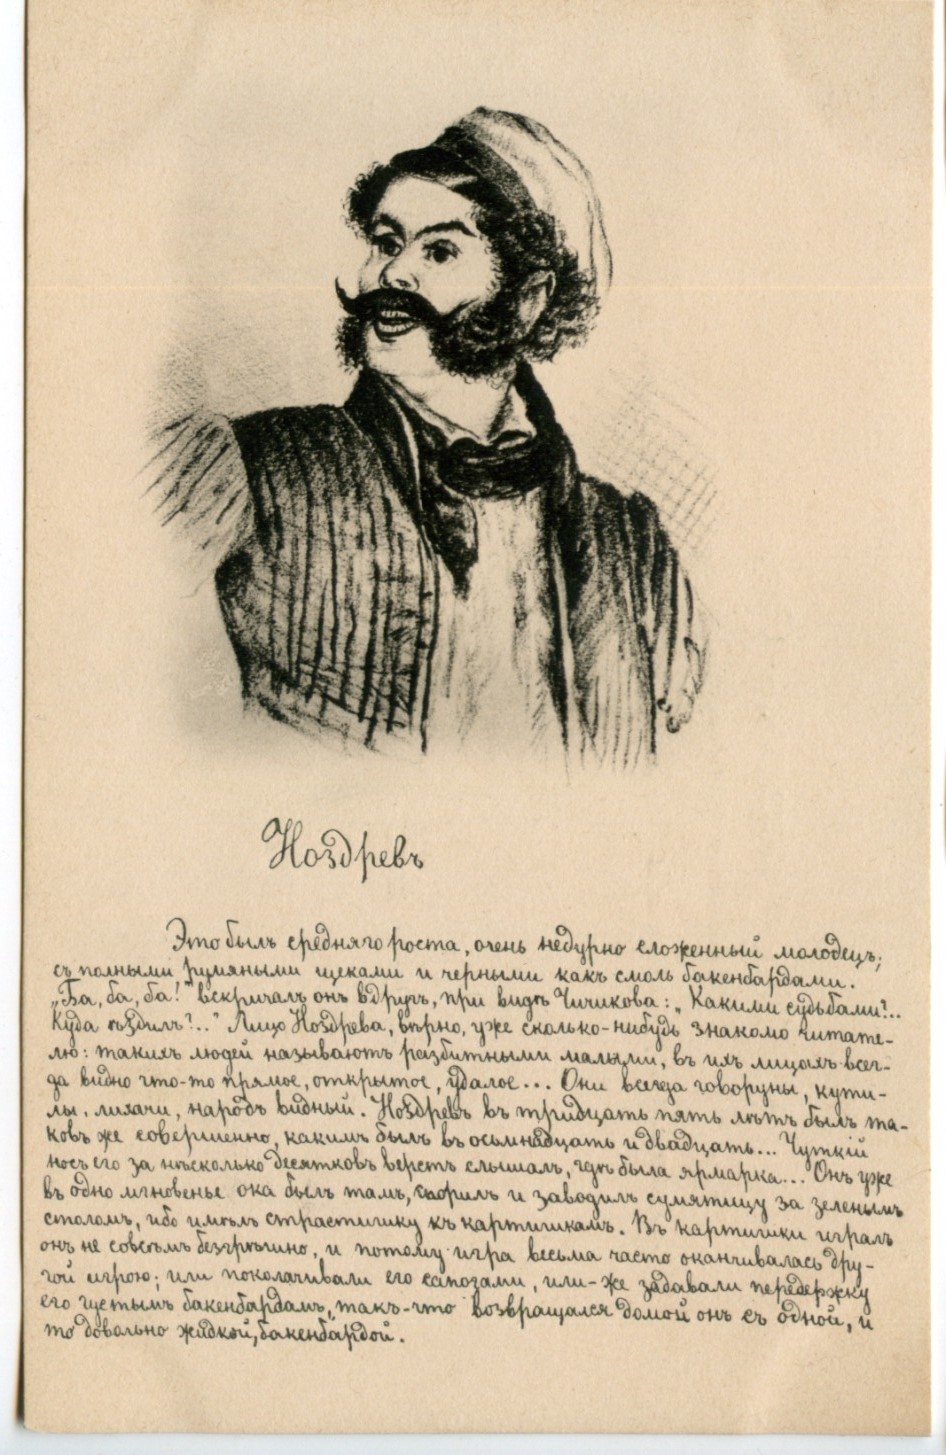 Ноздревъ
Это былъ средняго роста, очень недурно сложенный молодецъ;
съ полными румяными щеками и черными какъ смоль бакенбардами.
„Ба, ба, ба!" вскричалъ онъ вдругъ, при видѣ Чичикова: „Какими судьбами?..
Куда ѣздилъ?.." Лицо Ноздрева, вѣрно, уже сколько-нибудь знакомо читате-
лю: такихъ людей называютъ разбитными малыми, въ ихъ лицахъ всег-
да видно что-то прямое, открытое, удалое... Они всегда говоруны, кути-
лы, лихачи, народъ видный. Ноздревъ въ тридцать пять лѣтъ былъ та-
ковъ же совершенно, какимъ былъ въ осьмнадцать и двадцать... Чуткій
носъ его за нѣсколько десятковъ верстъ слышалъ, гдѣ была ярмарка... Онъ уже
въ одно мгновенье ока былъ тамъ, спорилъ и заводилъ сумятицу за зеленымъ
столомъ, ибо имѣлъ страстишку къ картишкамъ. Въ картишки игралъ
онъ не совсѣмъ безгрѣшно, и потому игра весьма часто оканчивалась дру-
гой игрою; или поколачивали его сапогами, или-же задавали передержку
его густымъ бакенбардамъ, такъ-что возвращался домой онъ съ одной, и
то довольно жидкой, бакенбардой.